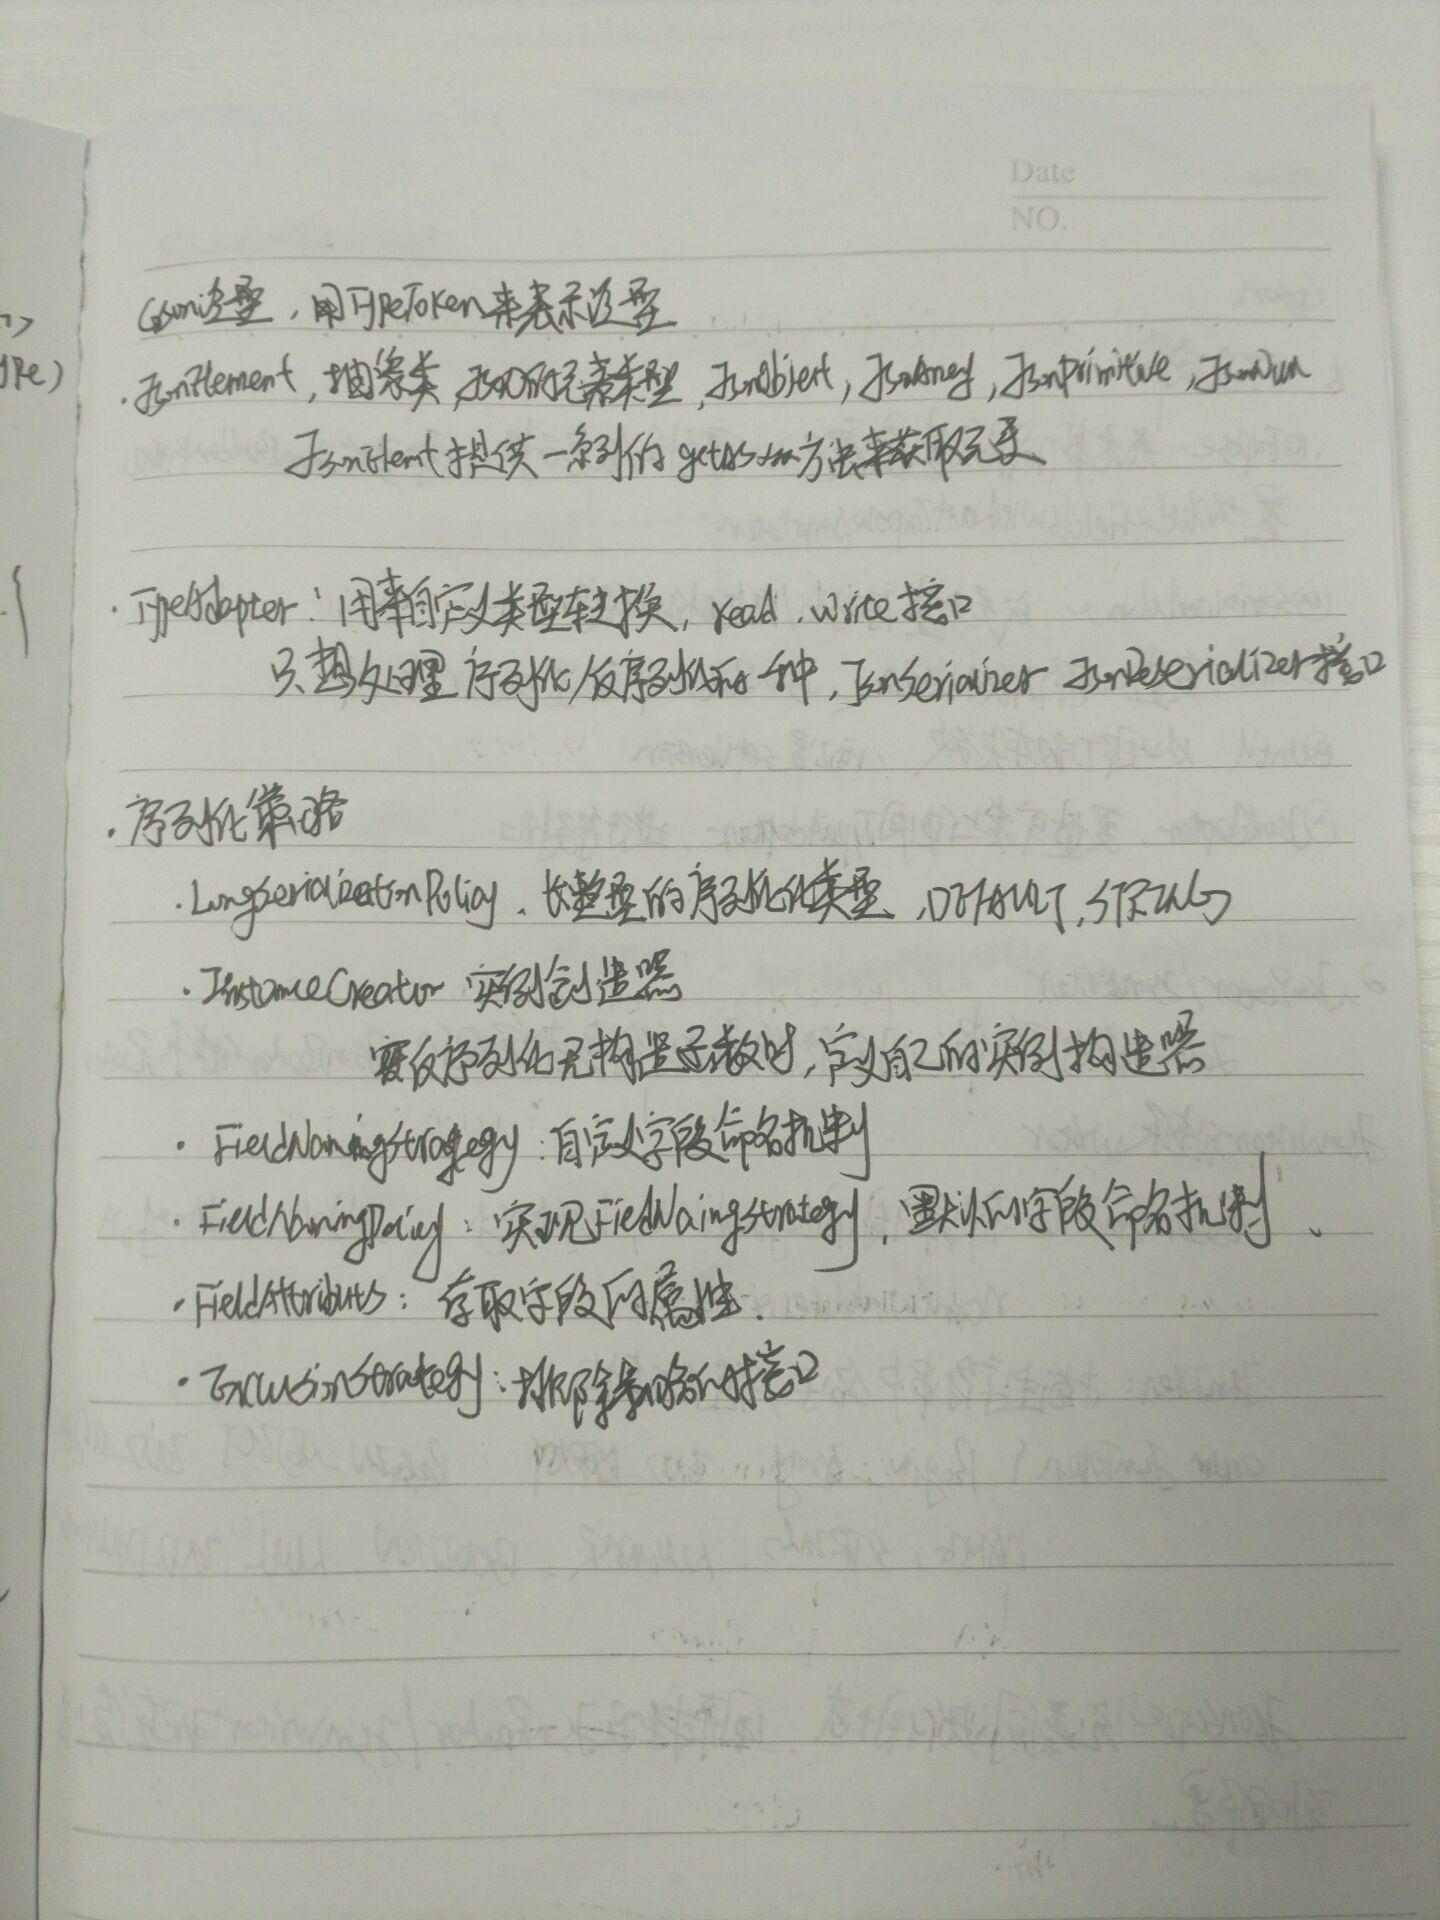 Date
NO.
Gson泛型，用TypeToken来表示泛型
·JsonElement，抽象类，Json的元素类型，JsonObject，JsonArray，JsonPrimitive，JsonNull
JsonElement提供一系列的getAsxxx方法来获取元素
·TypeAdapter：用来自定义类型转换，read、write接口
只想处理序列化/反序列化和一种，JsonSerializer JsonDeserializer接口
·序列化策略
·LongSerializationPolicy、长整型的序列化类型，DEFAULT，STRING
·InstanceCreator 实例创造器
要反序列化无构造函数时，定义自己的实例构造器
· FieldNamingStrategy：自定义字段命名机制
·FieldNamingPolicy：实现FieldNaingStrategy，默认的字段命名机制、
·FieldAttributes：存取字段的属性.
·ExclusionStrategy：排除策略的接口